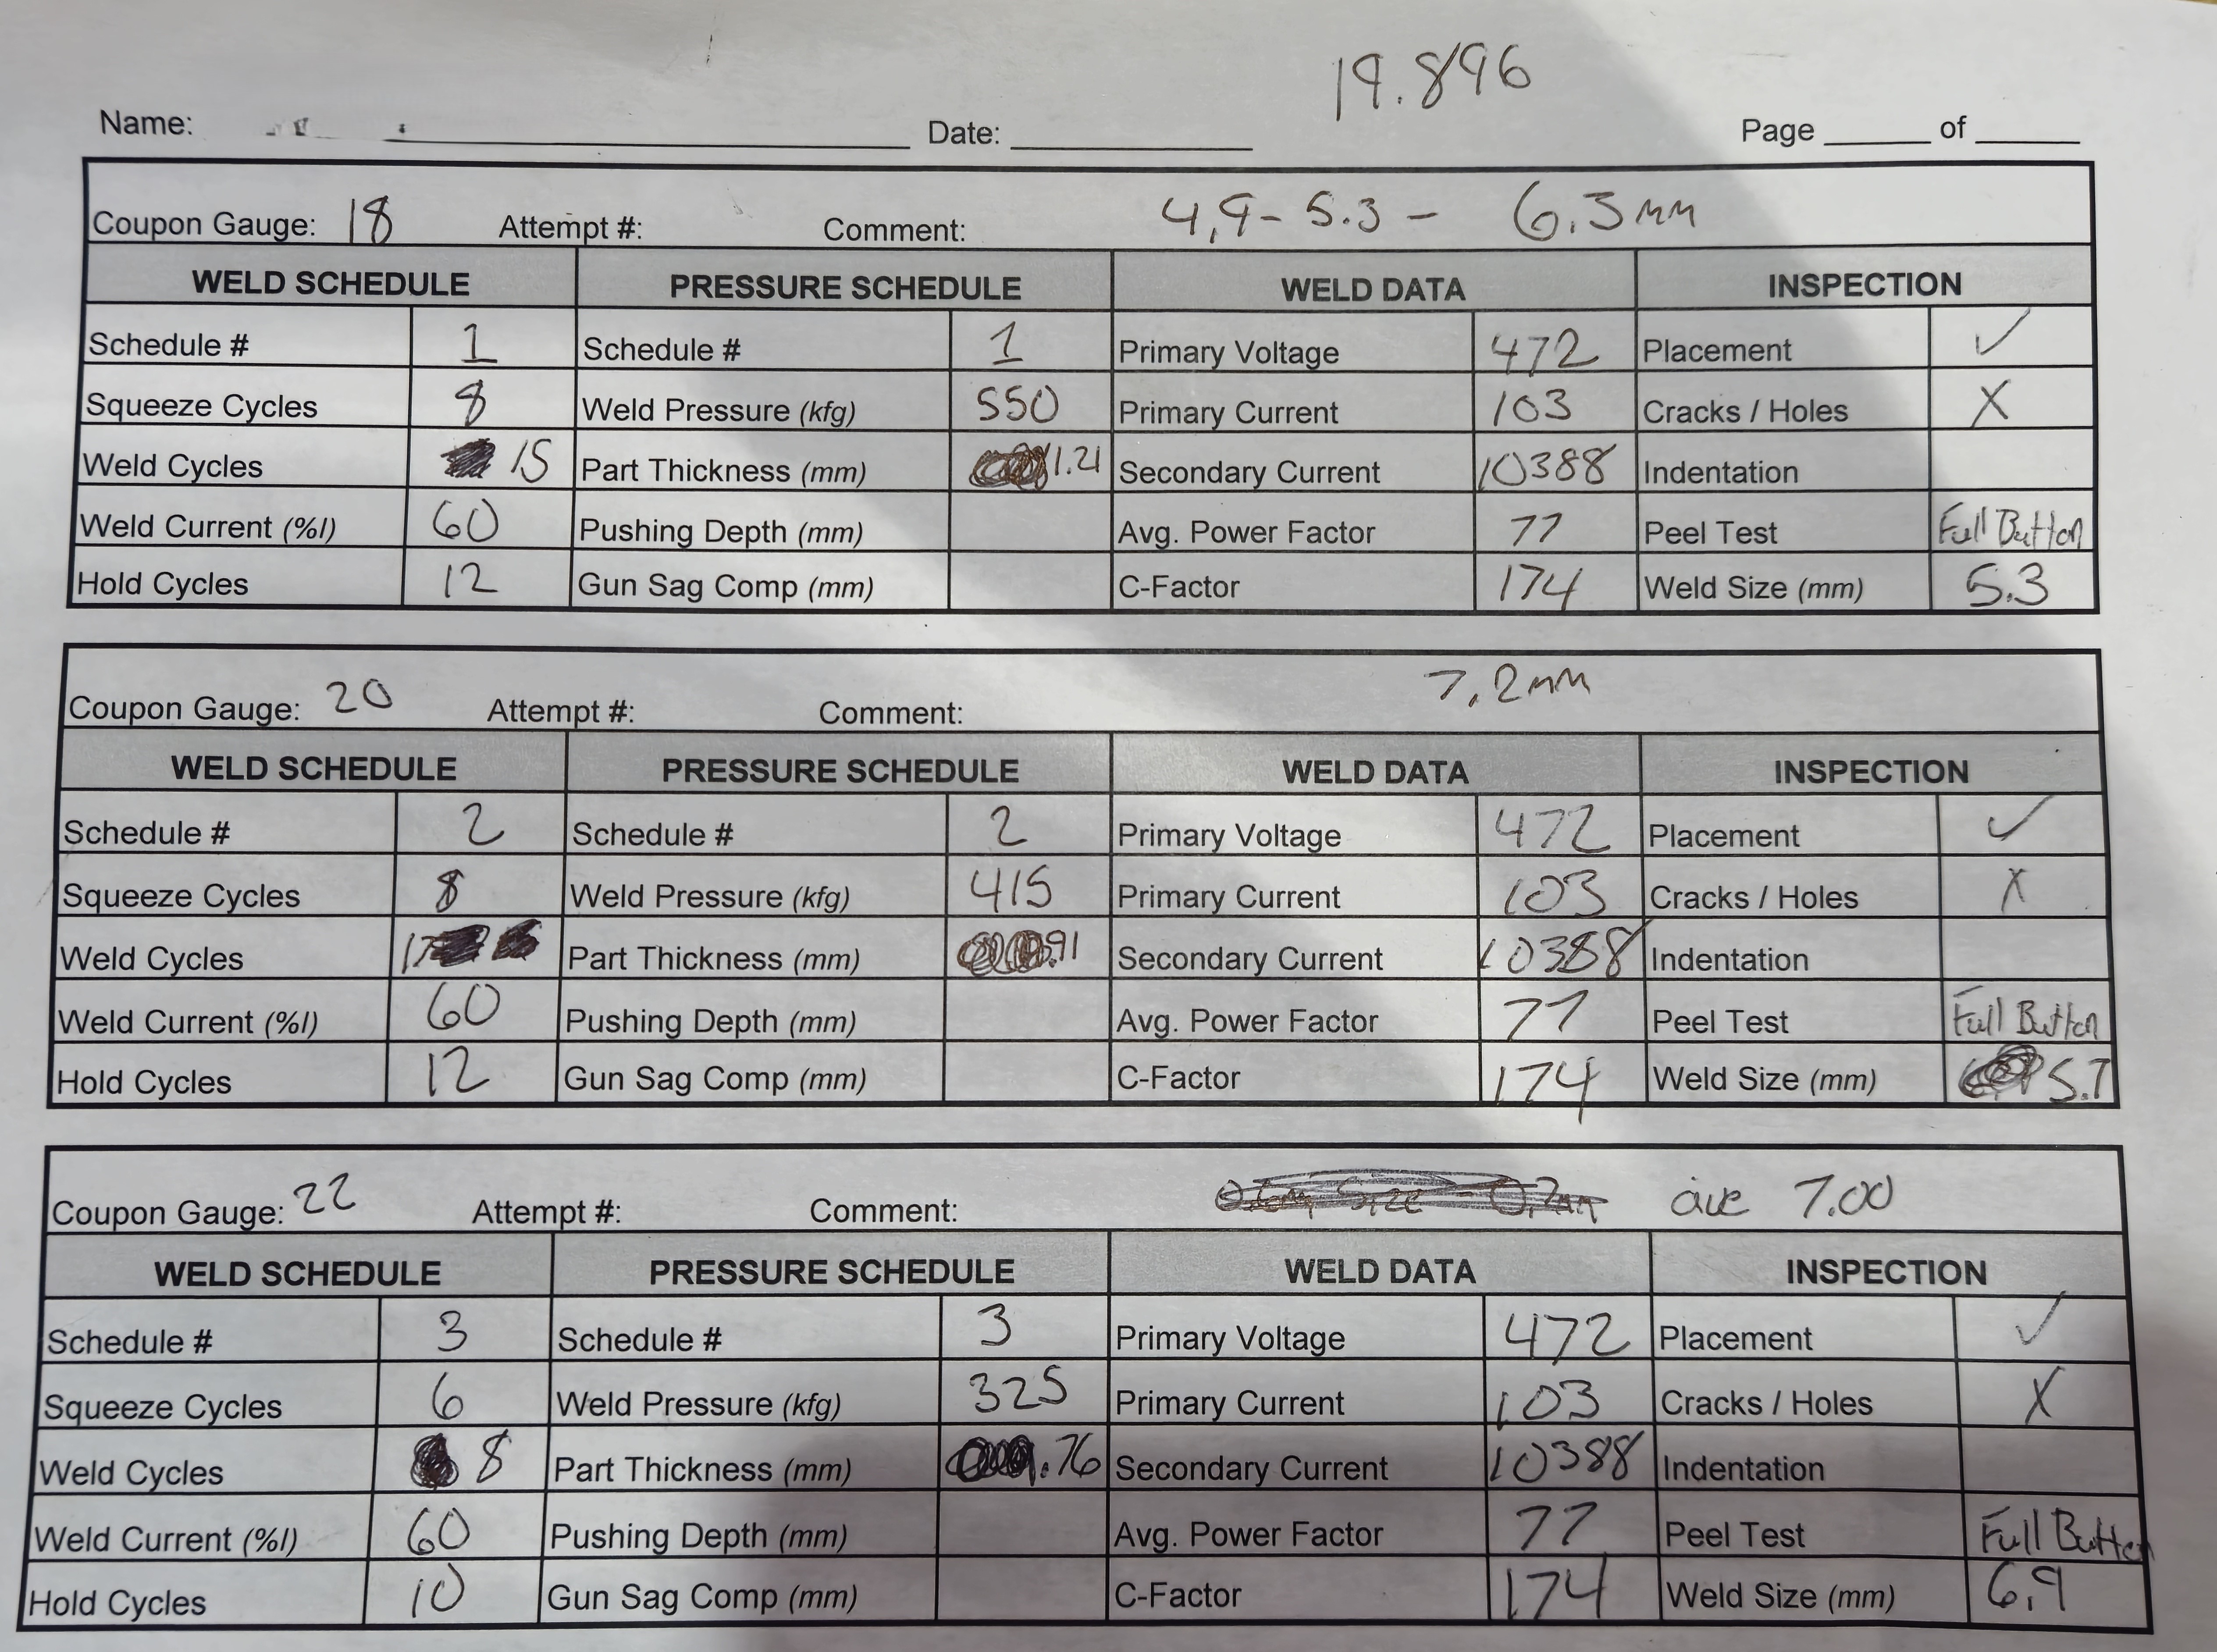 19.896
Name: Date: Page of
Coupon Gauge: 18 Attempt #: Comment: 4,9- 5.3 - 6.3mm
WELD SCHEDULE PRESSURE SCHEDULE WELD DATA INSPECTION
Schedule # 1 Schedule # 1 Primary Voltage 472 Placement ✓
Squeeze Cycles 8 Weld Pressure (kfg) 550 Primary Current 103 Cracks / Holes X
Weld Cycles 15 Part Thickness (mm) 1.21 Secondary Current 10388 Indentation
Weld Current (%I) 60 Pushing Depth (mm) Avg. Power Factor 77 Peel Test Full Button
Hold Cycles 12 Gun Sag Comp (mm) C-Factor 174 Weld Size (mm) 5.3
Coupon Gauge: 20 Attempt #: Comment: 7,2mm
WELD SCHEDULE PRESSURE SCHEDULE WELD DATA INSPECTION
Schedule # 2 Schedule # 2 Primary Voltage 472 Placement ✓
Squeeze Cycles 8 Weld Pressure (kfg) 415 Primary Current 103 Cracks / Holes X
Weld Cycles 17 Part Thickness (mm) .91 Secondary Current 10388 Indentation
Weld Current (%I) 60 Pushing Depth (mm) Avg. Power Factor 77 Peel Test Full Button
Hold Cycles 12 Gun Sag Comp (mm) C-Factor 174 Weld Size (mm) 5.7
Coupon Gauge: 22 Attempt #: Comment: ave 7.00
WELD SCHEDULE PRESSURE SCHEDULE WELD DATA INSPECTION
Schedule # 3 Schedule # 3 Primary Voltage 472 Placement ✓
Squeeze Cycles 6 Weld Pressure (kfg) 325 Primary Current 103 Cracks / Holes X
Weld Cycles 8 Part Thickness (mm) .76 Secondary Current 10388 Indentation
Weld Current (%I) 60 Pushing Depth (mm) Avg. Power Factor 77 Peel Test Full Button
Hold Cycles 10 Gun Sag Comp (mm) C-Factor 174 Weld Size (mm) 6,9